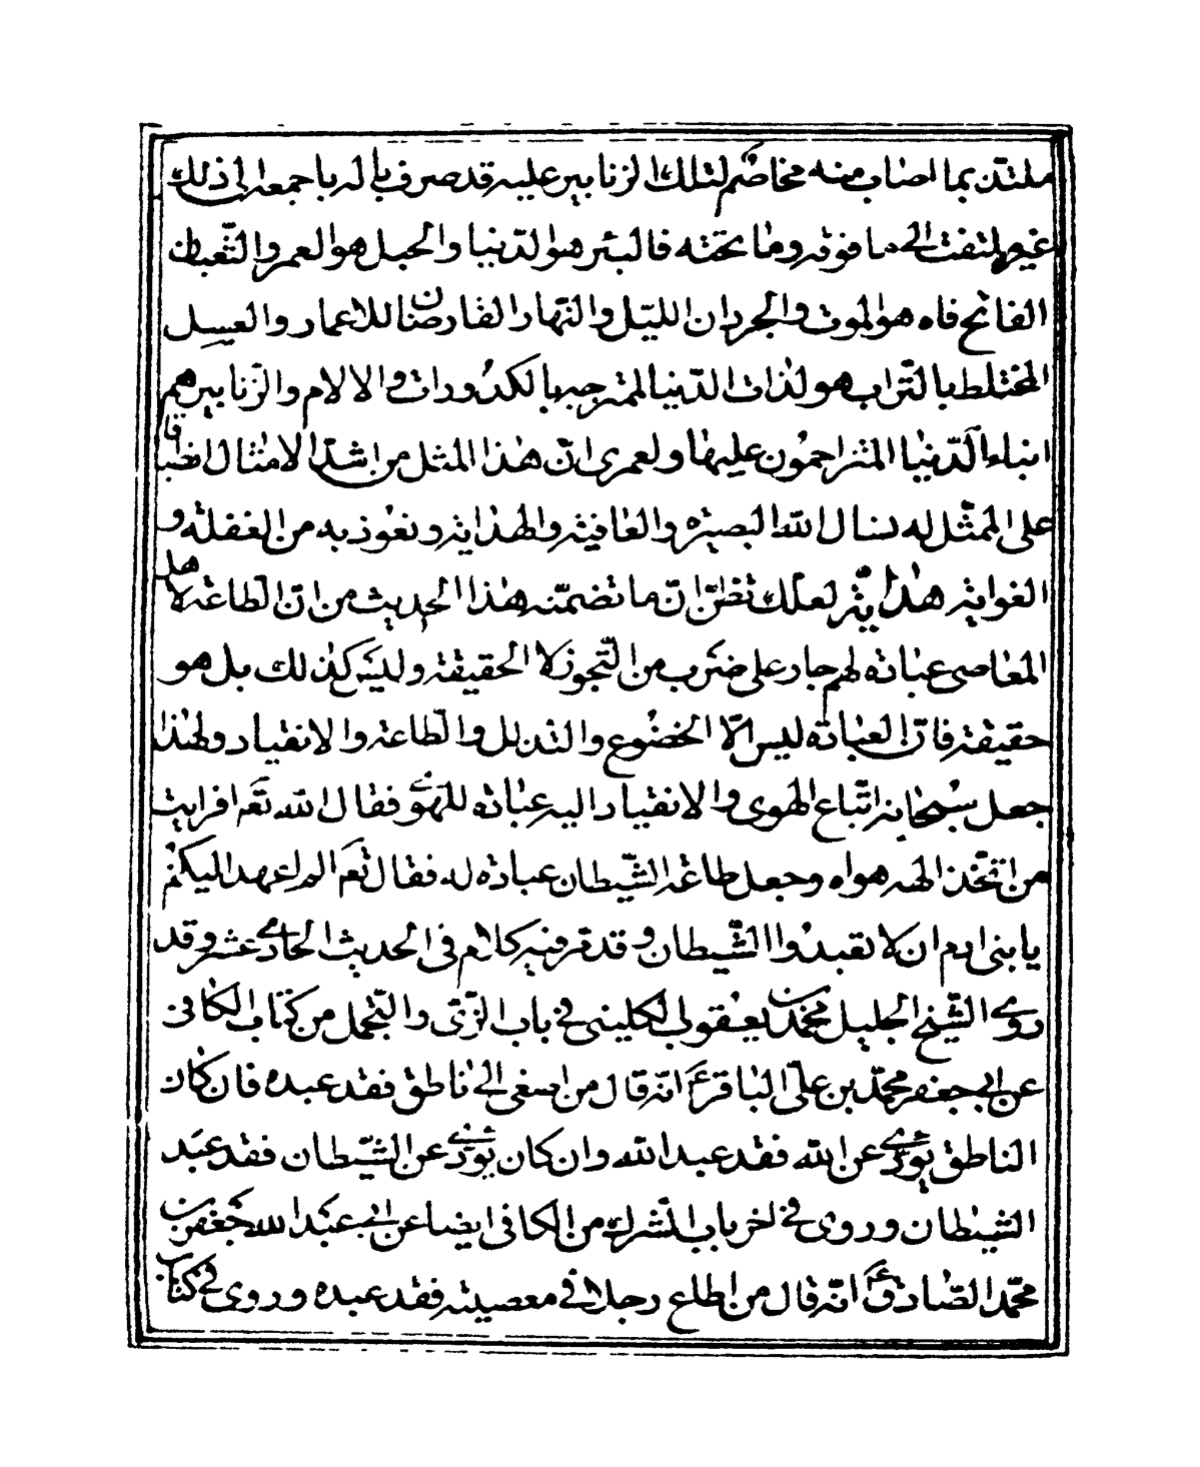 ملتذ بما اصاب منه مخاصم لتلك الزنابير عليه قد صرف باله باجمعه الى ذلك
غير ملتفت الى ما فوقه وما تحته فالبئر هو الدنيا والحبل هو العمر والثعبان
الفاتح فاه هو الموت والجرذان الليل والنهار القارضان للاعمار والعسل
المختلط بالتراب هو لذات الدنيا الممتزجة بالكدورات والالام والزنابير هم
ابناء الدنيا المتزاحمون عليها ولعمرى ان هذا المثل من اشد الامثال انطباقا
على الممثل له نسال الله البصيرة والهداية ونعوذ به من الغفلة و
الغواية هداية لعلك تظن ان ما تضمنه هذا الحديث من ان الطاعة لاهل
المعاصى عبادة لهم جار على ضرب من التجوز لا الحقيقة وليس كذلك بل هو
حقيقة فان العبادة ليس الا الخضوع والتذلل والطاعة والانقياد ولهذا
جعل سبحانه اتباع الهوى والانقياد اليه عبادة للهوى فقال الله تع افرايت
من اتخذ الهه هواه وجعل طاعة الشيطان عبادة له فقال تع الم اعهد اليكم
يا بنى ادم ان لا تعبدوا الشيطان وقد مر فيه كلام فى الحديث الحادى عشر وقد
روى الشيخ الجليل محمد بن يعقوب الكلينى فى باب الزى والتجمل من كتاب الكافى
عن ابى جعفر محمد بن على الباقر ع انه قال من اصغى الى ناطق فقد عبده فان كان
الناطق يؤدى عن الله فقد عبد الله وان كان يؤدى عن الشيطان فقد عبد
الشيطان وروى فى اخر باب الشرك من الكافى ايضا عن ابى عبد الله جعفر بن
محمد الصادق ع انه قال من اطاع رجلا فى معصية فقد عبده وروى فى كتاب